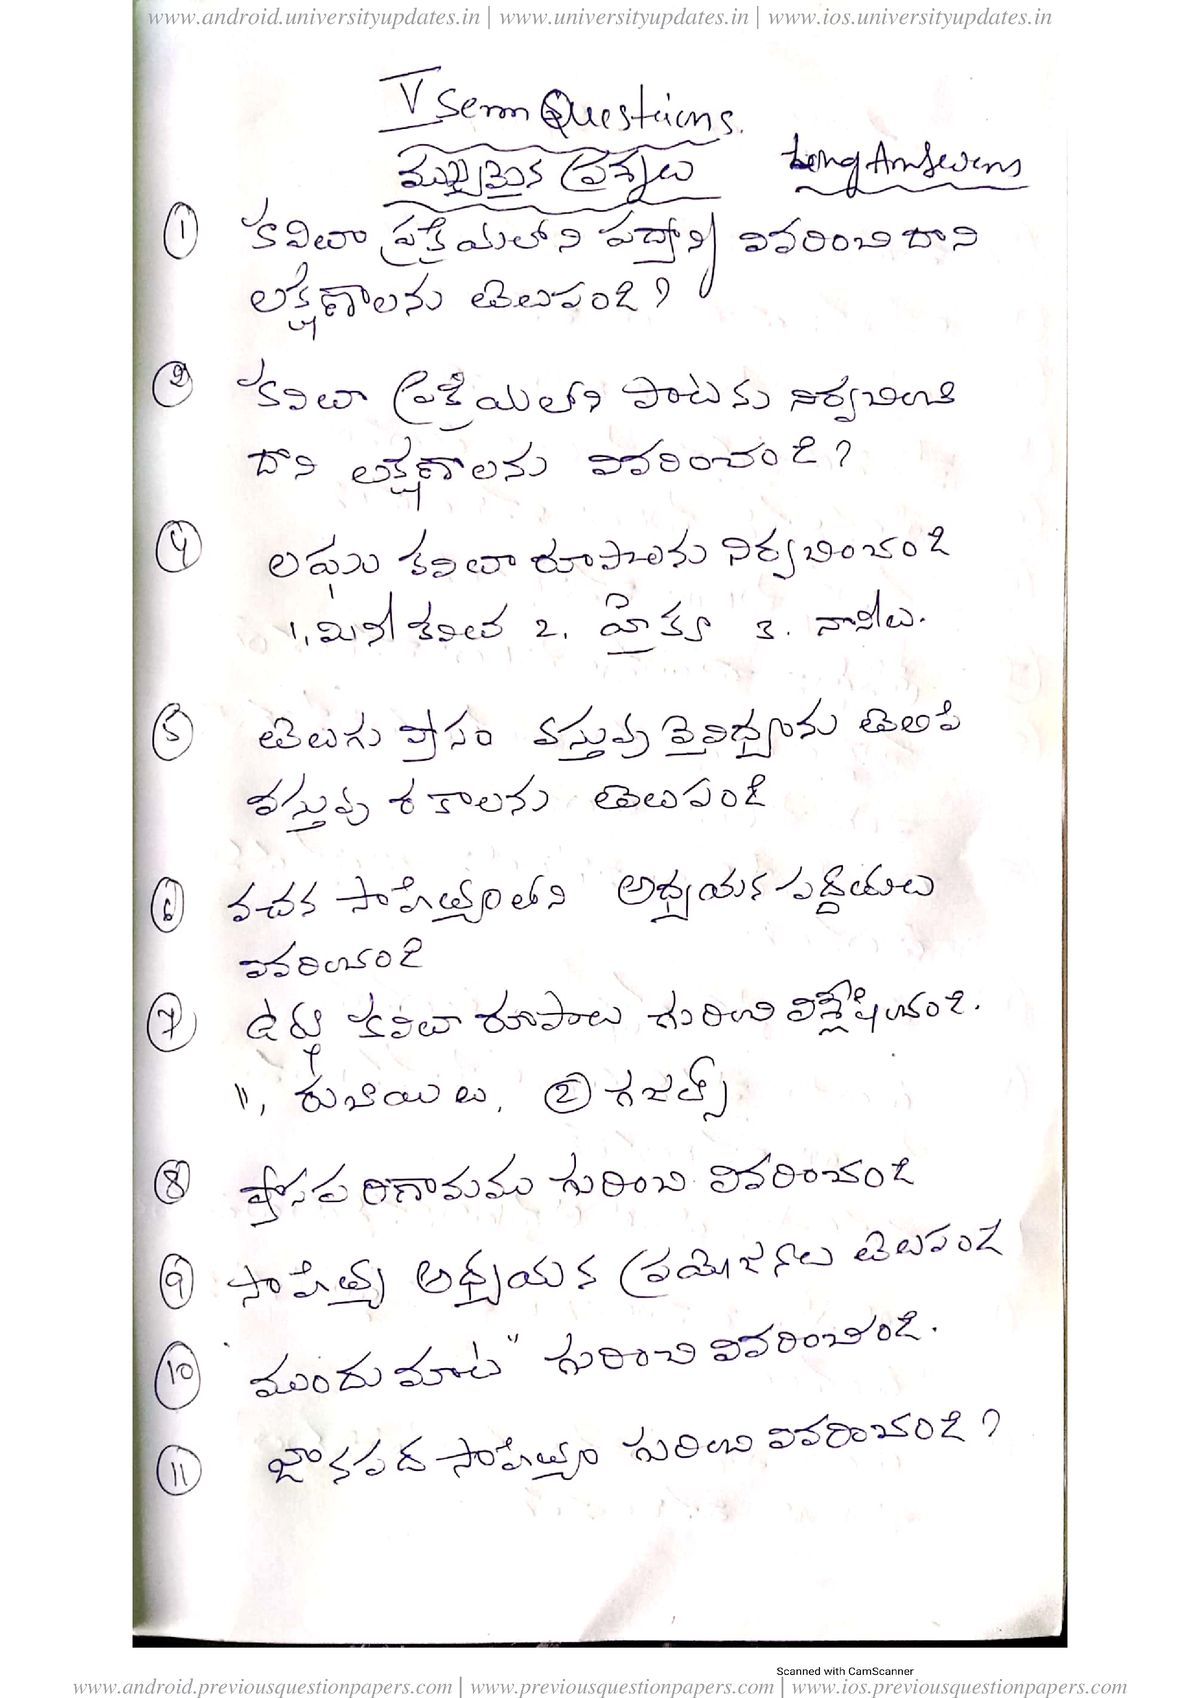 www.android.universityupdates.in | www.universityupdates.in | www.ios.universityupdates.in
V Sem Questions.
ముఖ్యమైన ప్రశ్నలు
Long Answers
① కవితా ప్రక్రియలోని పద్యాన్ని వివరించి దాని
లక్షణాలను తెలపండి?
② కవితా ప్రక్రియలోని పాటను నిర్వచించి
దాని లక్షణాలను వివరించండి?
④ లఘు కవితా రూపాలను నిర్వచించండి
1, మినీ కవిత 2. హైకూ 3. నానీలు.
⑤ తెలుగు వ్యాసం వస్తువు వైవిధ్యంను తెలిపి
వస్తువు శకాలను తెలుపండి
⑥ వచన సాహిత్యంలోని అధ్యయన పద్ధతులు
వివరించండి
⑦ ఉర్దూ కవితా రూపాలు గురించి విశ్లేషించండి.
1, రుబాయిలు, ② గజల్స్
⑧ వ్యాసపరిణామము గురించి వివరించండి
⑨ సాహిత్య అధ్యయన ప్రయోజనాలు తెలపండి
⑩ "ముందుమాట" గురించి వివరించండి.
⑪ జానపద సాహిత్యం గురించి వివరించండి?
Scanned with CamScanner
www.android.previousquestionpapers.com | www.previousquestionpapers.com | www.ios.previousquestionpapers.com